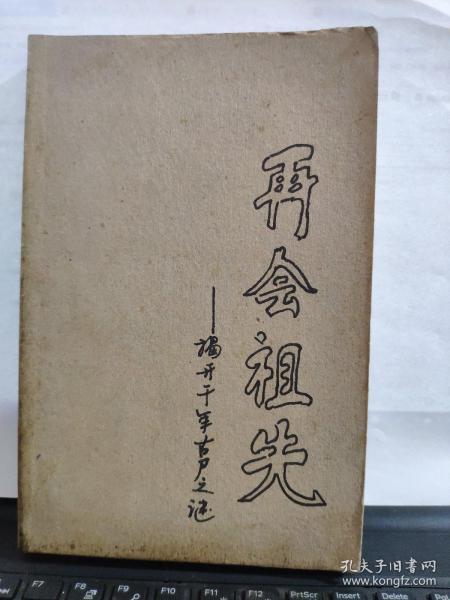 再会祖先
——揭开千年古尸之谜
F7
F8
F9
F10
F11
F12
PrtScr
Insert
Delete
孔夫子旧书网
www.kongfz.com